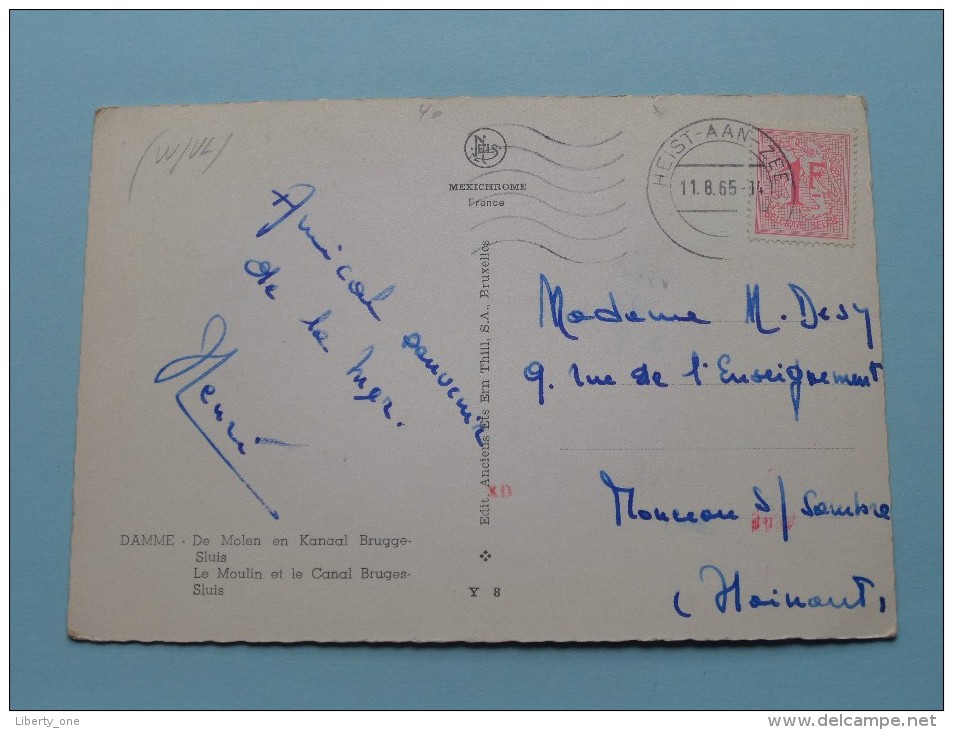 (W/VL)
40
NELS
MEXICHROME
France
HEIST-AAN-ZEE
11.8.65-14
1F
BELGIQUE-BELGIË
Amical souvenir
de la mer.
Henri
Madame M. Desy
9. rue de l'Enseignement
Monceau S/ Sambre
(Hainaut)
Edit. Anciens Ets Ern Thill, S.A., Bruxelles
XD
DAMME - De Molen en Kanaal Brugge-
Sluis
Le Moulin et le Canal Bruges-
Sluis
Y 8
Liberty_one
http://www.delcampe.net